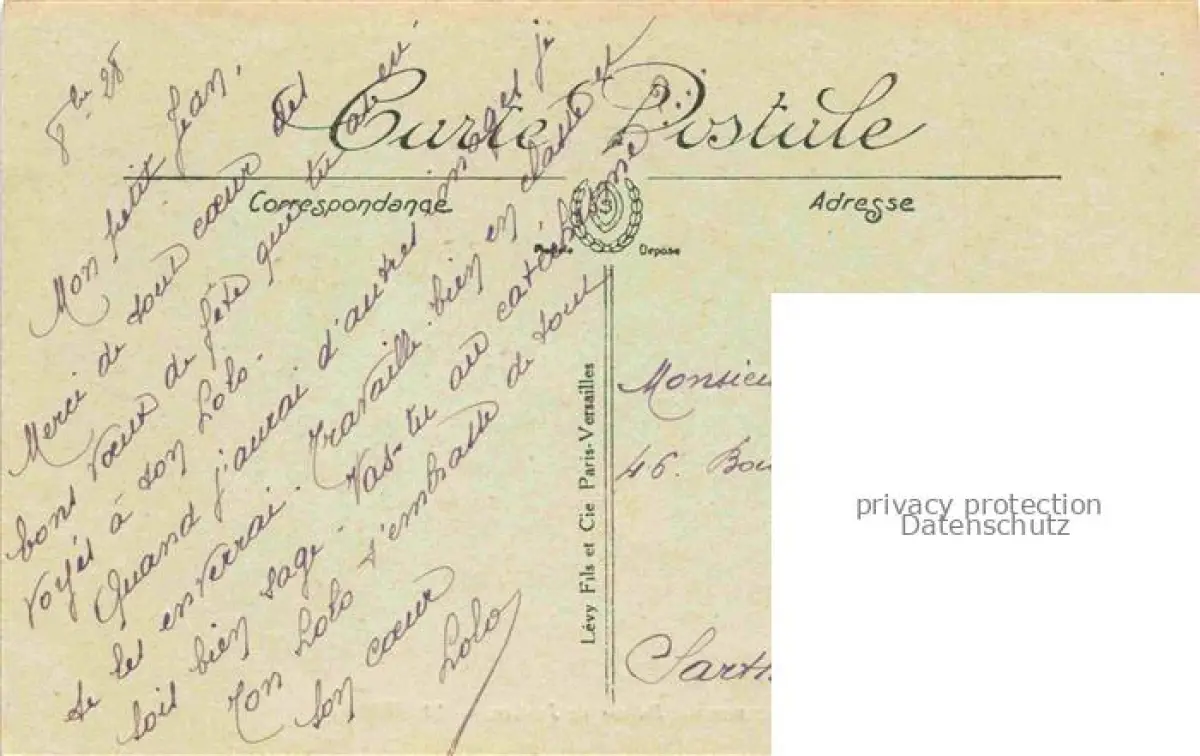 Carte Postale
Correspondance
Adresse
Depose
Lévy Fils et Cie Paris-Versailles
8bre 28
Mon petit Jean,
Merci de tout cœur des
bons vœux de fête que tu as en
voyés à ton Lolo.
Quand j'aurai d'autres images je
te les enverrai. Travaille bien en classe et
sois bien sage. Vas-tu au catéchisme
Ton Lolo t'embrasse de tout
son cœur
Lolo
Monsieu
46. Bou
Sarts
privacy protection
Datenschutz